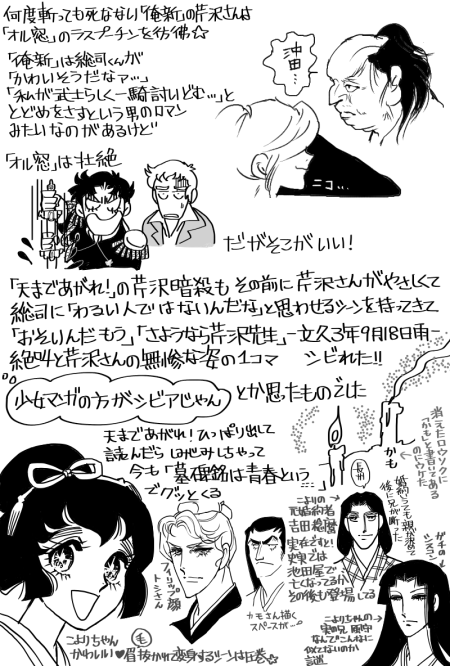 何度斬っても死なない「俺新」の芹沢さんは
「オル窓」のラスプーチンを彷彿☆
「俺新」は総司くんが
「かわいそうだなァ…」
「私が武士らしく一騎討いどむ…」と
とどめをさすという男のロマン
みたいなのがあるけど
沖田…
ニコ…
「オル窓」は壮絶
だがそこがいい!
「天まであがれ!」の芹沢暗殺も その前に 芹沢さんがやさしくて
総司に「わるい人ではないんだな」と思わせるシーンを持ってきて
「おそいんだもう」「さようなら芹沢先生」―文久3年9月18日雨―
絶叫と芹沢さんの無惨な姿の1コマ シビれた!!
少女マンガの方がシビアじゃん
とか思ったものでした
天まであがれ!ひっぱり出して
読んだら はがみしちゃって
今も「墓碑銘は青春という…
でグッとくる
消えたロウソクに
「かも」と書いてある
のにウケた
かも
長州
婚約しても親が決めて
後に兄が断った
こよりの
元婚約者
吉田稔麿
実在なすと!
史実では
池田屋で
亡くなってるが
その後も登場してる
ガチの
シスコン
フィリップ顔
トシさん
カモさん描く
スペースが…。
こよりちゃんの
実の兄
なんでこんなに
似てないのか
謎
こよりちゃん
かわいい♥
毛
眉抜かれ変身するシーンは圧巻☆